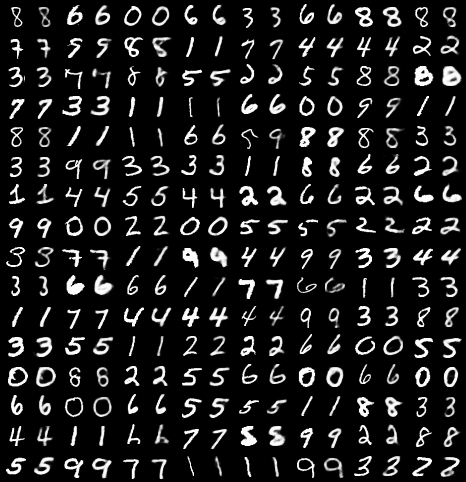 8 8 6 6 0 0 6 6 3 3 6 6 8 8 8 8
7 7 9 9 8 8 1 1 7 7 4 4 4 4 2 2
3 3 7 7 8 8 5 5 2 2 5 5 8 8 8 8
7 7 3 3 1 1 1 1 6 6 0 0 9 9 1 1
8 8 1 1 1 1 6 6 5 9 8 8 8 8 3 3
3 3 9 9 3 3 3 3 1 1 8 8 6 6 2 2
1 1 4 4 5 5 4 4 2 2 6 6 2 2 6 6
9 9 0 0 2 2 0 0 5 5 5 5 2 2 2 2
3 3 7 7 1 1 9 9 4 4 9 9 3 3 4 4
3 3 6 6 6 6 1 1 7 7 6 6 1 1 3 3
1 1 7 7 4 4 4 4 4 4 9 9 3 3 8 8
3 3 5 5 1 1 2 2 2 2 6 6 0 0 5 5
0 0 8 8 2 2 5 5 6 6 0 0 6 6 0 0
6 6 0 0 6 6 5 5 5 5 1 1 8 8 3 3
4 4 1 1 7 7 8 8 9 9 2 2 8 8
5 5 9 9 7 7 1 1 1 1 9 9 3 3 2 8